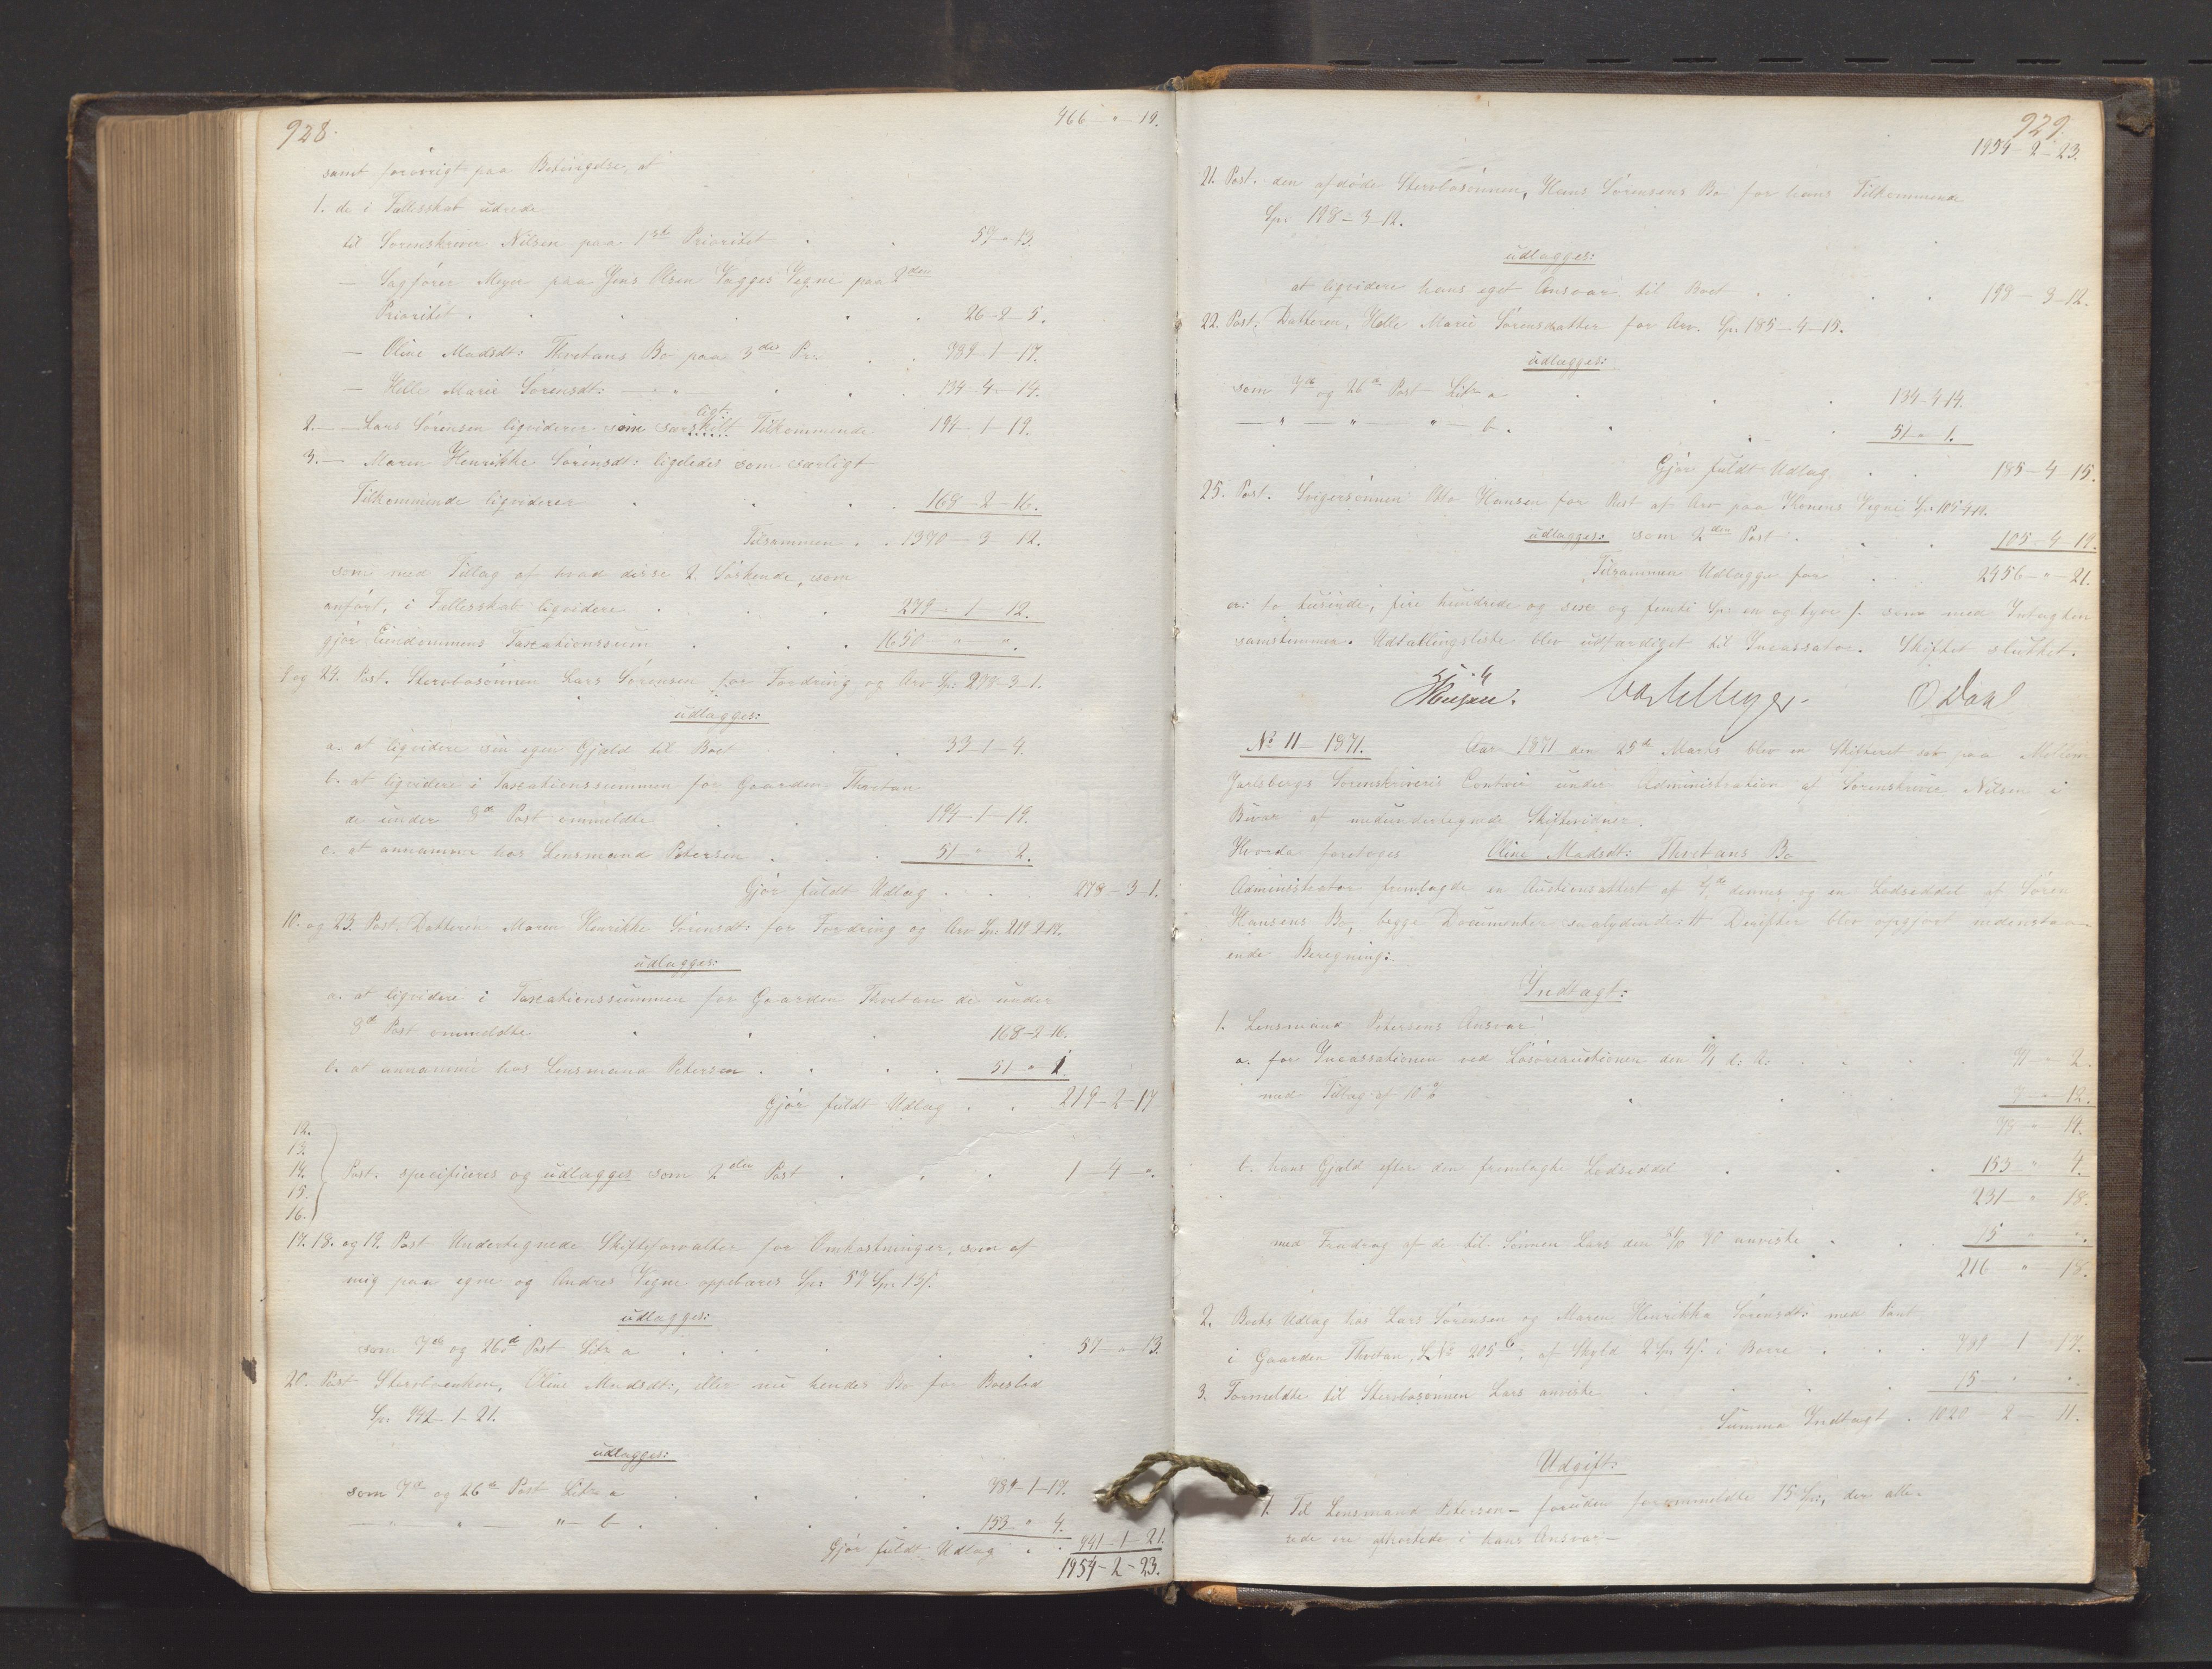 928.
466 - " - 19.
samt forøvrigt paa Betingelse, at
1. de i Fællesskab udrede
til Sorenskriver Nilsen paa 1ste Prioritet . . 57 - " - 13.
— Sagfører Meyer paa Jens Olsen Vegne paa 2den
Prioritet . . . . . 26 - 2 - 5.
— Oline Madsdt: Thvetans Bo paa 3die Pr: . . 789 - 1 - 17.
— Helle Marie Sørensdt: — " — . . 134 - 4 - 14.
2. — Lars Sørensen ligviderer som særskilt Tilkommende 194 - 1 - 19.
ligt:
3. — Maren Henrikke Sørensdt: ligeledes som særligt
Tilkommende ligviderer . . . . 168 - 2 - 16.
Tilsammen . . 1370 - 3 - 12.
som med Tillæg af hvad disse 2 Søskende, som
anført, i Fællesskab ligvidere . . . 279 - 1 - 12.
gjør Eiendommens Taxationssum . . . 1650 " ".
og 24. Post. Stervbosønnen Lars Sørensen for Fordring og Arv Sp: 278-3-1.
udlægges:
a. at ligvidere sin egen Gjæld til Boet . . 33 - 1 - 4.
b. at ligvidere i Taxationssummen for Gaarden Thvetan
de under 8de Post ommeldte . . 194 - 1 - 19.
c. at annamme hos Lensmand Petersen . . . 51 " 2.
Gjør fuldt Udlæg . . . 278 - 3 - 1.
10. og 23. Post. Datteren Maren Henrikke Sørensdt: for Fordring og Arv Sp: 219-2-17.
udlægges:
a. at ligvidere i Taxationssummen for Gaarden Thvetan de under
8de Post ommeldte . . . 168 - 2 - 16.
b. at annamme hos Lensmand Petersen . . . . 51 - " 1.
Gjør fuldt Udlæg . . 219 - 2 - 17
12.
13.
14. Post. specificeres og udlægges som 2den Post . . . 1 - 4 - ".
15.
16.
17. 18. og 19. Post Undertegnede Skifteforvalter for Omkostninger, som af
mig paa egne og Andres Vegne oppebæres Sp: 57 Sp: 13 s.
udlægges:
som 7de og 26de Post Litr a . . . . . . 57 - " - 13.
20. Post Stervboenken, Oline Madsdt:, eller nu hendes Bo for Boeslod
Sp: 942 - 1 - 21.
udlægges:
som 7de og 26de Post Litr a . . . . 789 - 1 - 17.
— " — " — " — b . . . . 153 " 4.
Gjør fuldt Udlæg . . 942 - 1 - 21.
1954 - 2 - 23.
929.
1954 - 2 - 23.
21. Post. den afdøde Stervbosønnen, Hans Sørensens Bo for hans Tilkommende
Sp: 198 - 3 - 12.
udlægges:
at ligvidere hans eget Ansvar til Boet . . . . 198 - 3 - 12.
22. Post. Datteren, Helle Marie Sørensdatter for Arv. Sp: 185-4-15.
udlægges:
som 7de og 26de Post Litr a . . . 134 - 4 14.
— " — " — " — b . . . . 51 " 1.
Gjør fuldt Udlæg . . 185 - 4 - 15.
25. Post. Svigersønnen Hansen for Rest af Arv paa Konens Vegne Sp: 105-4-19.
udlægges: som 2den Post . . . 105 - 4 - 19.
Tilsammen Udlægge for . . . 2456 - " - 21.
er: to tusinde, fire hundrede og sex og femti Sp: en og tyve s. som med Indtægten
samstemmer. Udtællingsliste blev udfærdiget til Incassator. Skiftet sluttet.
O Dahl
No 11 - 1871. Aar 1871 den 25de Marts blev en Skifteret sat paa Mellem
Jarlsbergs Sorenskriveries Contoir under Administration af Sorenskriver Nilsen i
Bivær af medundertegnede Skiftevidner.
Hvorda foretoges Oline Madsdt: Thvetans Bo
Administrator fremlagde en Auctionsattest af dennes og en Lodseddel af Søren
Hansens Bo, begge Documenter saalydende: # Derefter blev opgjort nedenstaa-
ende Beregning:
Indtægt:
1. Lensmand Petersens Ansvar:
a. for Incassationen ved Løsøreauctionen den d: A: . . . 71 - " - 2.
med Tillæg af 10 % . . . 7 - " - 12.
78 " - 14.
b. hans Gjæld efter den fremlagte Lodseddel . . . 153 " 4.
231 - " 18.
med Fradrag af de til Sønnen Lars den 70 anviste . . . 15 " ".
216 " - 18.
2. Boets Udlæg hos Lars Sørensen og Maren Henrikka Sørensdt: med Pant
i Gaarden Thvetan, L No 205 b, af Skyld 2 Sp: 4 s. i Borre . . . . 789 1 - 17.
3. Formeldte til Stervbosønnen Lars anviste . . . . 15 " ".
Summa Indtægt . 1020 - 2 - 11.
Udgift:
1. Til Lensmand Petersen — foruden forommeldte 15 Sp:, der alle-
rede ere afkortede i hans Ansvar —